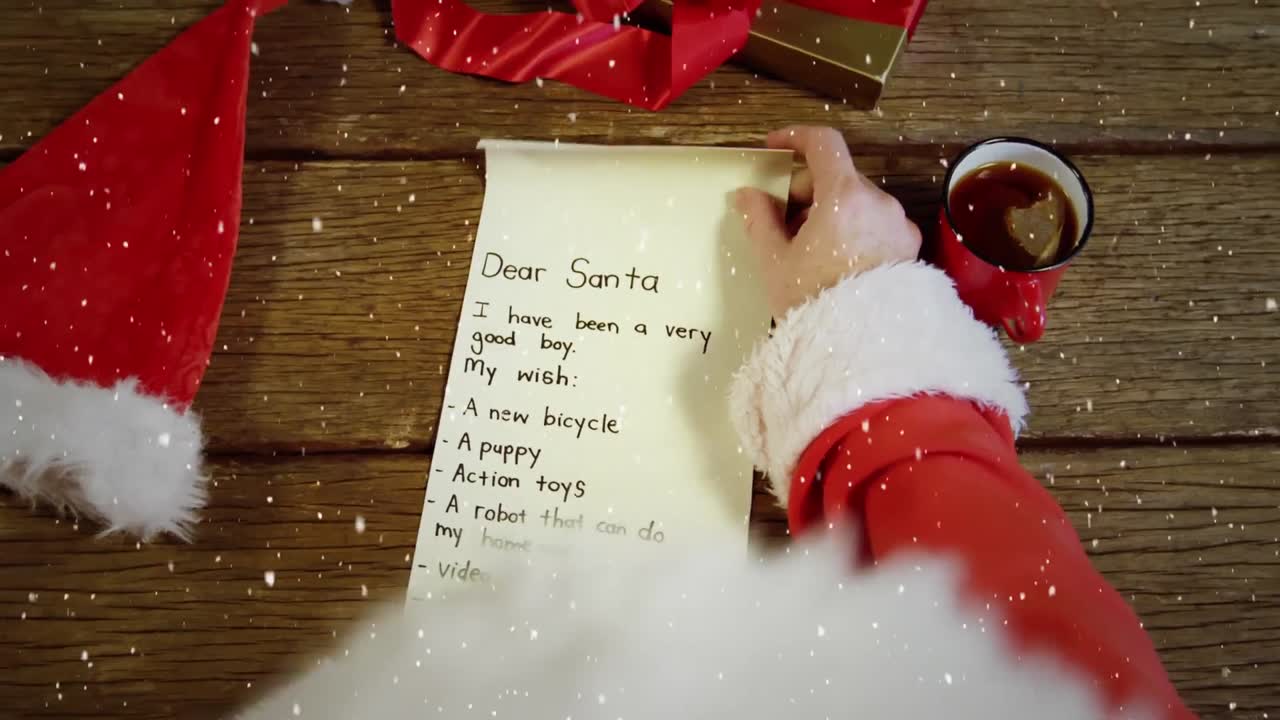 Dear Santa
I have been a very
good boy.
My wish:
- A new bicycle
- A puppy
- Action toys
- A robot that can do
my home
- video